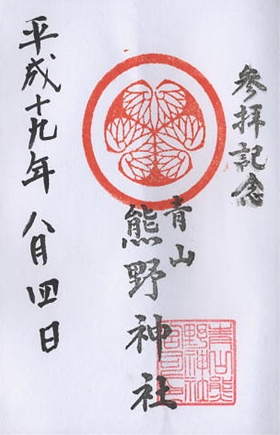 参拝記念
青山
熊野神社
平成十九年八月四日